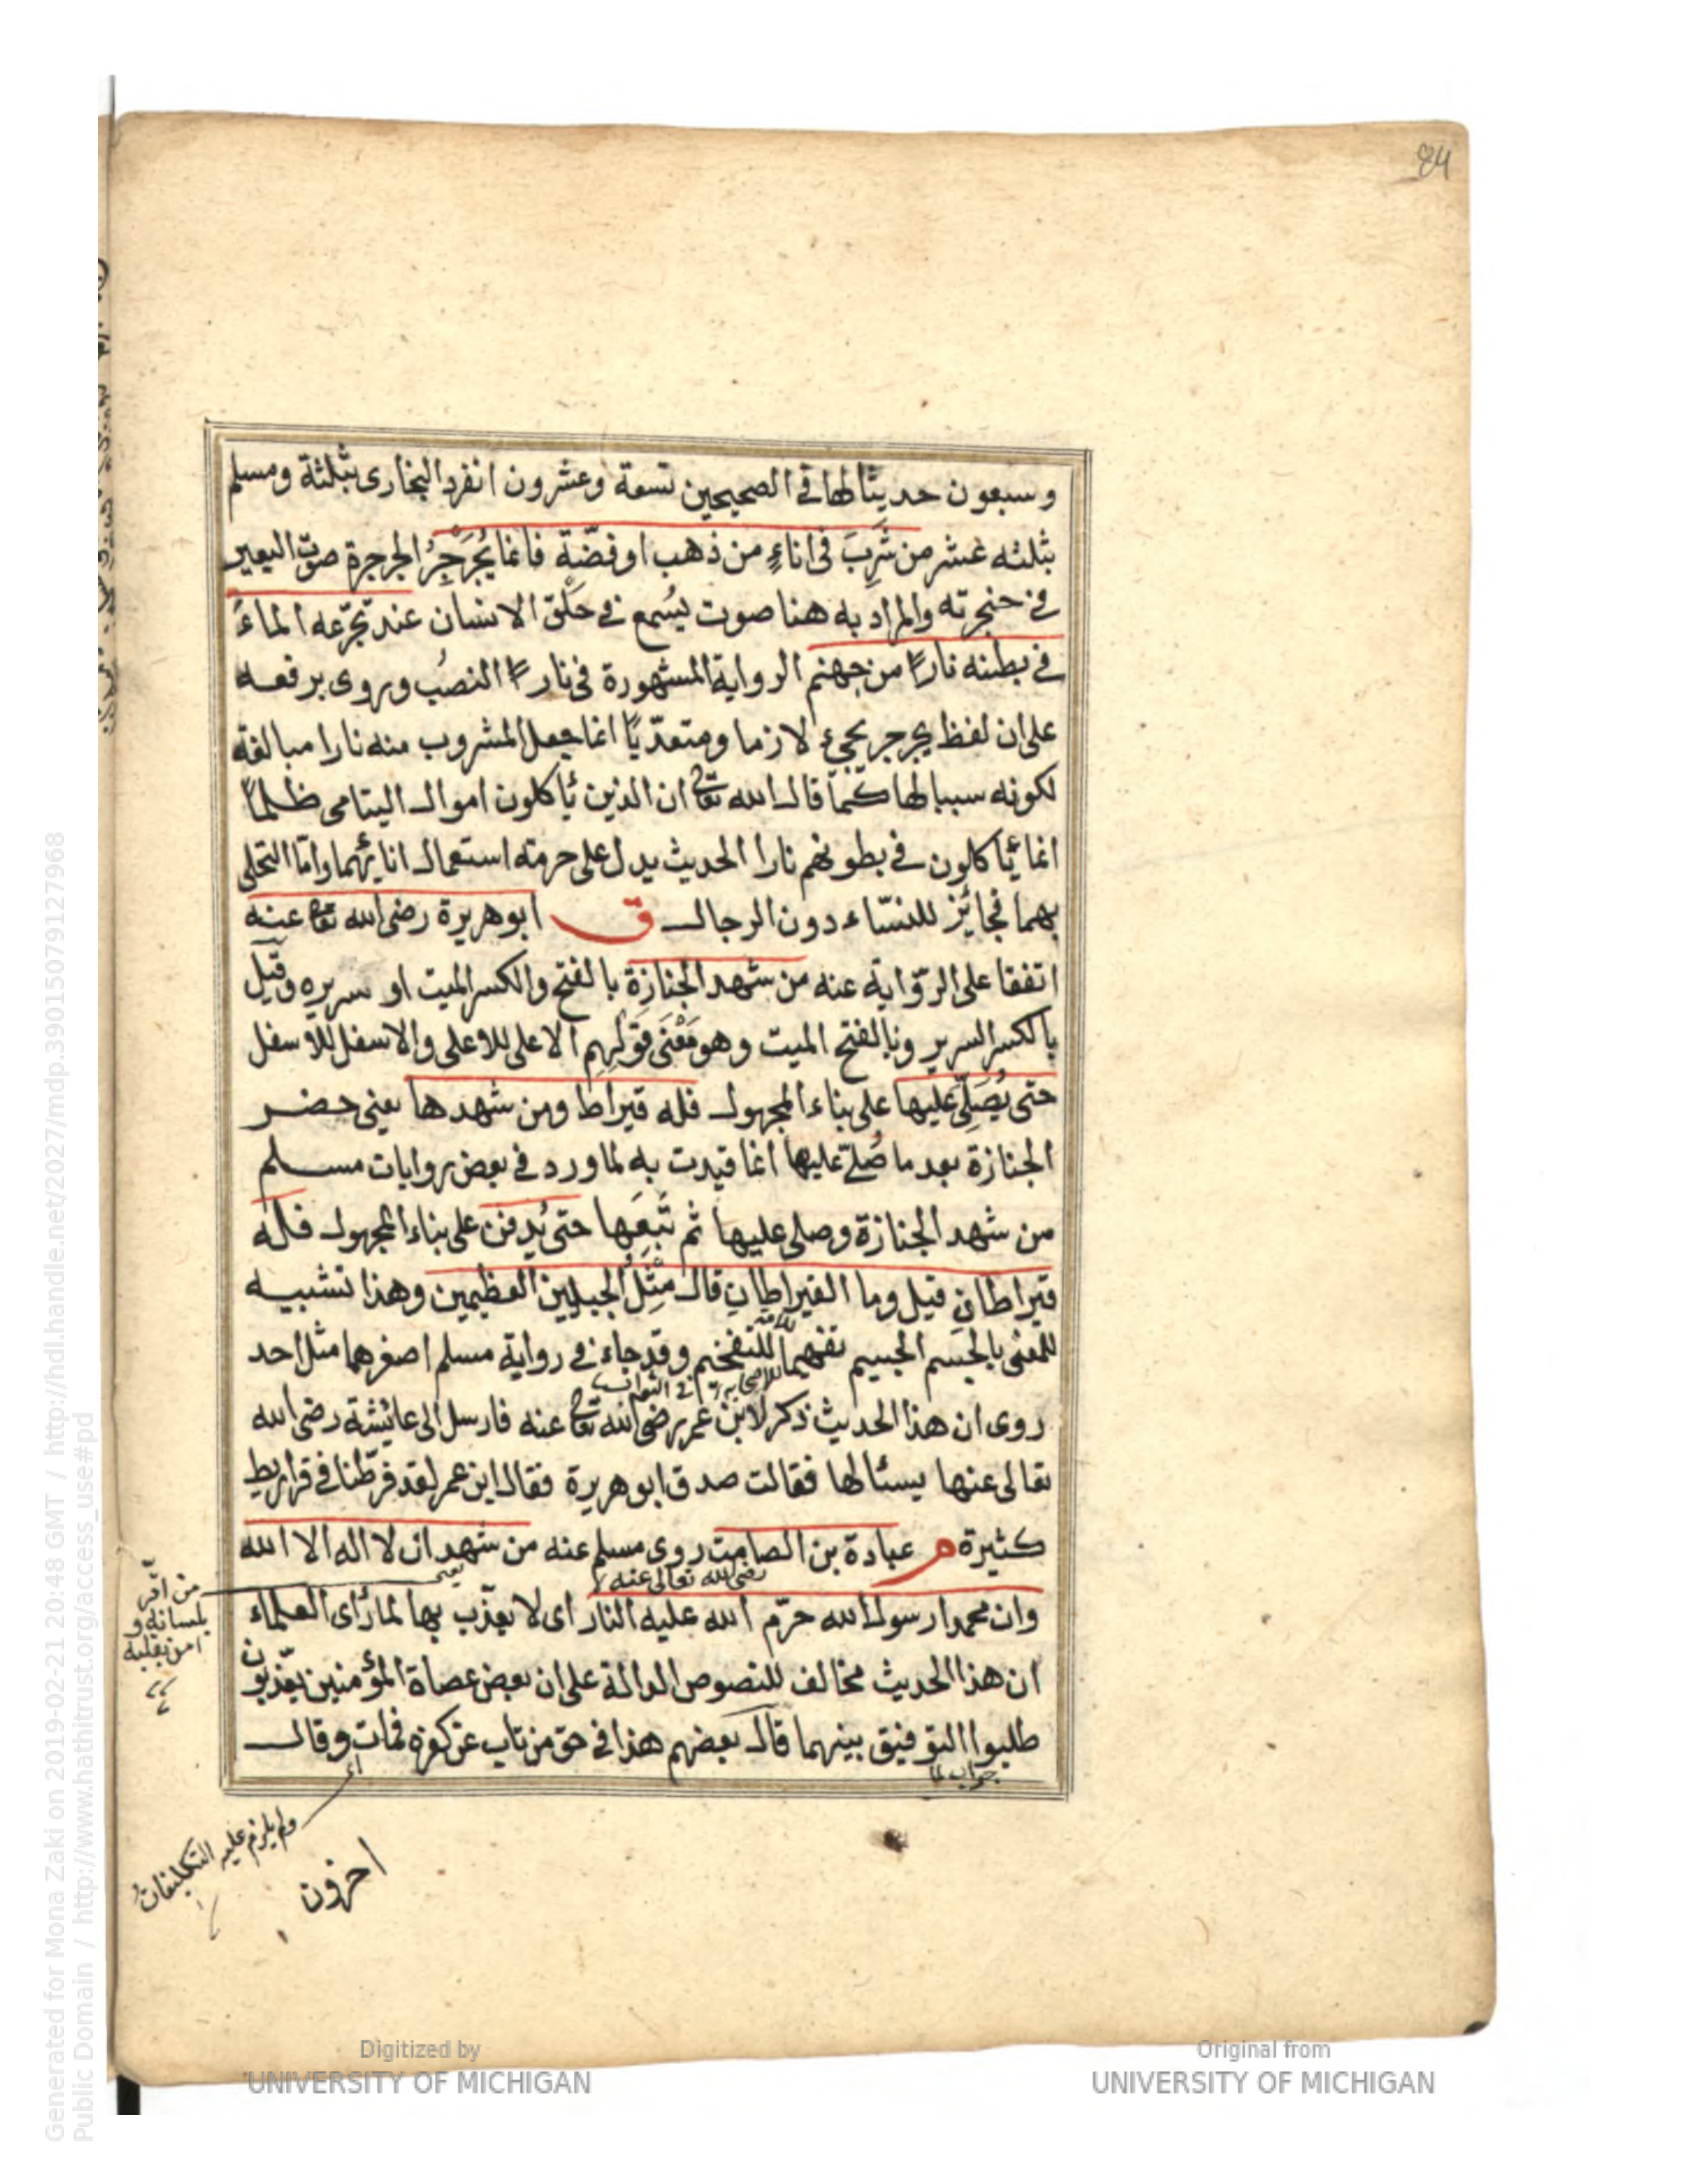 84
وسبعون حديثا لها في الصحيحين تسعة وعشرون انفرد البخارى بثلثة ومسلم
بثلثه عشر من شَرِبَ فى اناءٍ من ذهب او فضّة فانما يُجَرْجِرُ الجرجرة صوت البعير
فى حنجرته والمراد به هنا صوت يُسمع فى حَلْق الانسان عند تجرّعه الماءَ
فى بطنه نارًا من جهنم الرواية المشهورة فى نارًا النصبُ وروى برفعه
على ان لفظ يجرجر يجىء لازما ومتعدّيًا انما جعل المشروب منه نارا مبالغة
لكونه سببا لها كَمَا قال الله تعالى ان الذين يأكلون اموال اليتامى ظلمًا
انما يأكلون فى بطونهم نارا الحديث يدل على حرمته استعمال انائهما وامّا التحلى
بهما فجائز للنسّاء دون الرجال ق ابو هريرة رضى الله تعالى عنه
اتفقا على الرّواية عنه من شهد الجنازة بالفتح والكسر الميت او سريره وقيل
بالكسر السرير وبالفتح الميت وهو مَعْنَى قَولِهِم الاعلى للاعلى والاسفل للاسفل
حتى يُصَلّى عليها على بناء المجهول فله قيراط ومن شهدها يعنى حضر
الجنازة بعد ما صُلّى عليها انما قيدت به لما ورد فى بعض روايات مسلم
من شهد الجنازة وصلى عليها ثم تَبِعَها حتى يُدفن على بناء المجهول فله
قيراطانِ قيل وما القيراطانِ قال مِثْلُ الجبلين العظيمين وهذا تشبيه
للمعنى بالجسم الجسيم تفهيما للتفخيم وقد جاء فى رواية مسلم اصغرهما مثل احد
روى ان هذا الحديث ذكر لابن عمر رضى الله تعالى عنه فارسل الى عائشة رضى الله
تعالى عنها يسئالها فقالت صدق ابو هريرة فقال ابن عمر لقد فرّطنا فى قراريط
كثيرة م عبادة بن الصامت روى مسلم عنه من شهد ان لا اله الا الله
رضى الله تعالى عنه
وان محمدا رسول الله حرّم الله عليه النار اى لا يعذّب بها لما رأى العلماء
ان هذا الحديث مخالف للنصوص الدالة على ان بعض عصاة المؤمنين يعّذبون
طلبوا التوفيق بينهما قال بعضهم هذا فى حق من تاب عن كفره فمات وقال
جواب لما
من اقرّ
بلسانه و
امن بقلبه
ولم يلزم عليه التكليفات
اخرون
Digitized by
UNIVERSITY OF MICHIGAN
Original from
UNIVERSITY OF MICHIGAN
Generated for Mona Zaki on 2019-02-21 20:48 GMT / http://hdl.handle.net/2027/mdp.39015079127968
Public Domain / http://www.hathitrust.org/access_use#pd